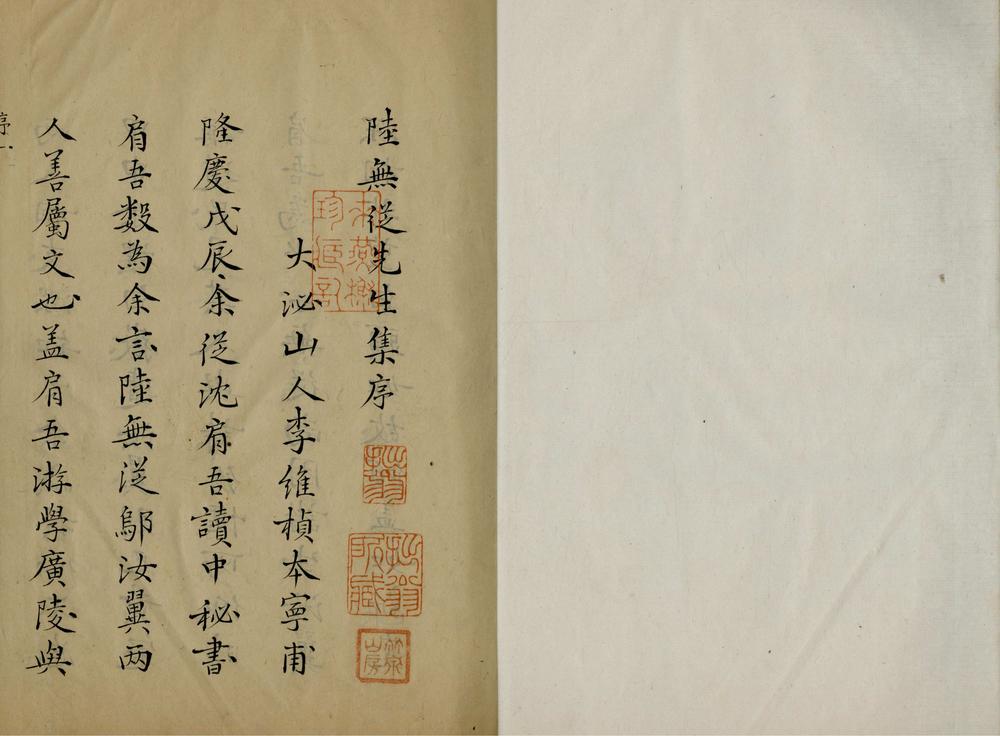 陸無從先生集序
大泌山人李維楨本寧甫
隆慶戊辰余從沈肩吾讀中秘書
肩吾數為余言陸無從鄔汝翼两
人善屬文也盖肩吾游學廣陵與
序
一
拙翁
拙翁所藏
山房